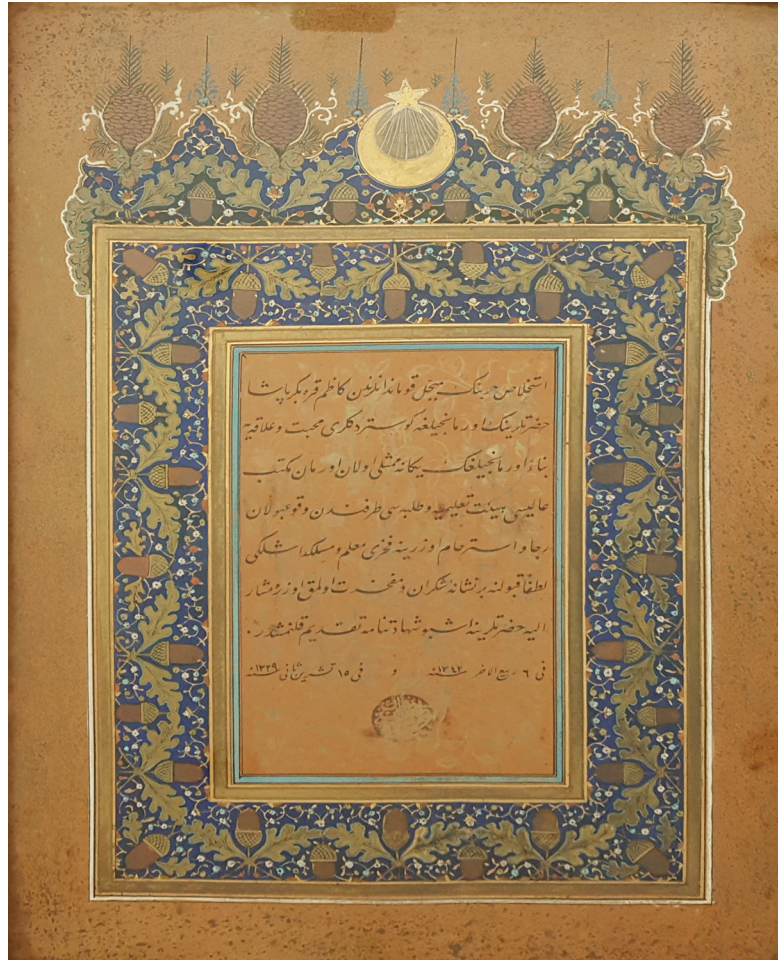 استخلاص حربنك مبجل قوماندانلرندن كاظم قره بكر پاشا
حضرتلرينك اورمانجيلغه كوستردكلرى محبت و علاقه يه
بناءً اورمانجيلغك يكانه ممثلى اولان اورمان مكتب
عاليسى هيئت تعليميه و طلبه سى طرفندن وقوعبولان
رجا و استرحام اوزرينه فخرى معلم و مسلكداشلكى
لطفاً قبولنه بر نشانهٔ شكران و مفخرت اولمق اوزره مشار
اليه حضرتلرينه اشبو شهادتنامه تقديم قلنمشدر ٠
فى ٦ ربيع الاخر سنه ١٣٤٢ و فى ١٥ تشرين ثانى سنه ١٣٣٩